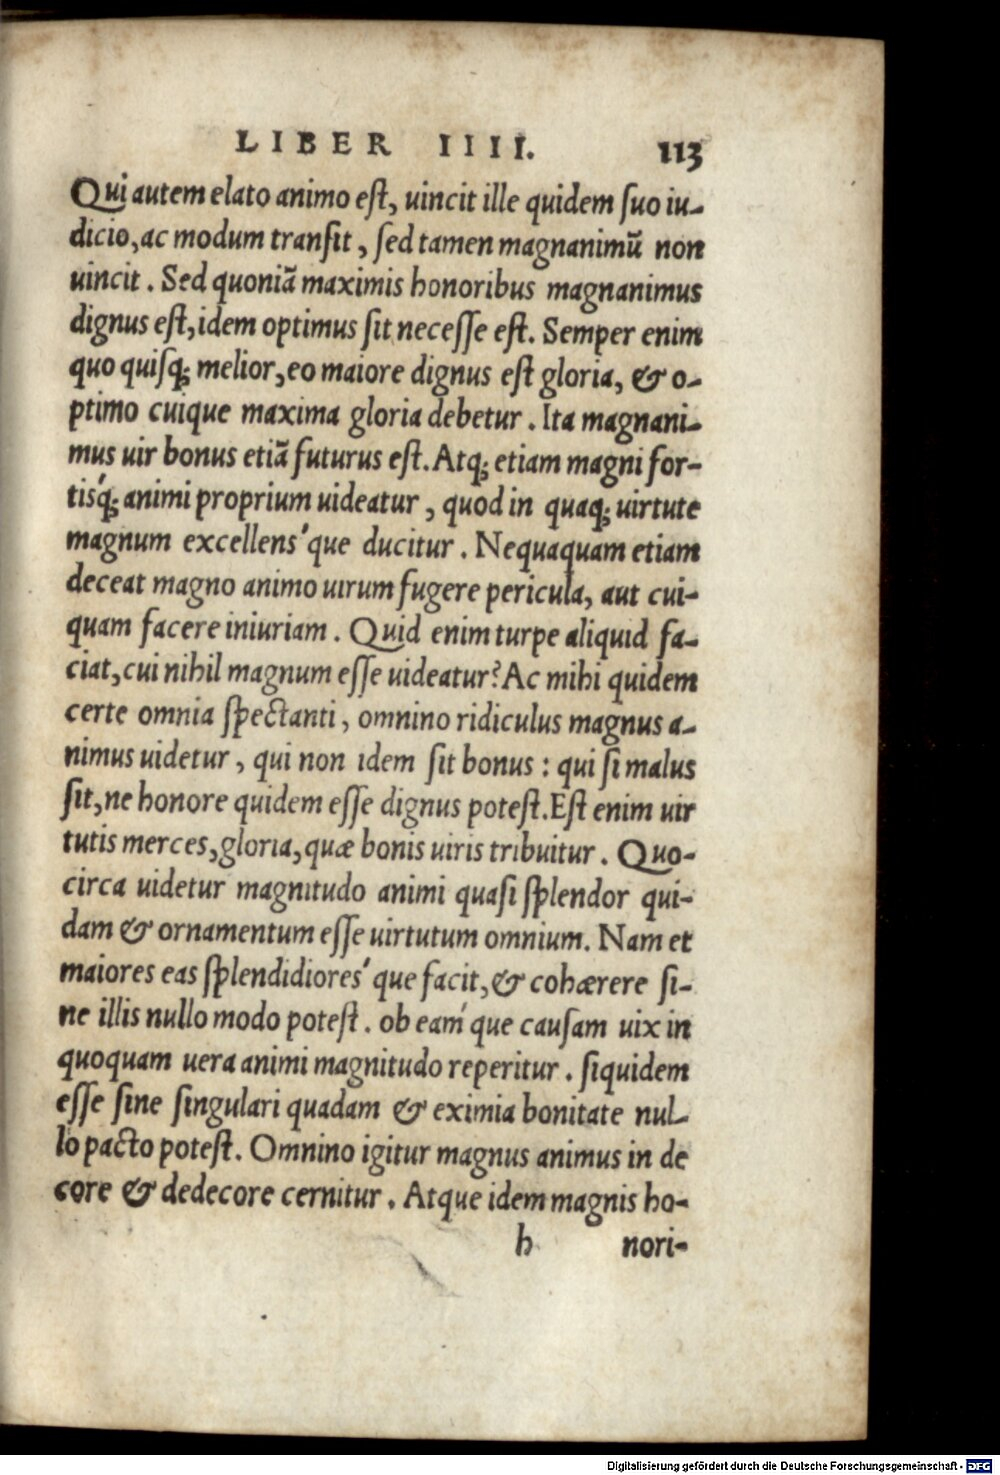 LIBER IIII. 113
Qui autem elato animo eſt, uincit ille quidem ſuo iu-
dicio, ac modum tranſit, ſed tamen magnanimū non
uincit. Sed quoniā maximis honoribus magnanimus
dignus eſt, idem optimus ſit neceſſe eſt. Semper enim
quo quiſq; melior, eo maiore dignus eſt gloria, & o-
ptimo cuique maxima gloria debetur. Ita magnani-
mus uir bonus etiā futurus eſt. Atq; etiam magni for-
tisq́; animi proprium uideatur, quod in quaq; uirtute
magnum excellens'que ducitur. Nequaquam etiam
deceat magno animo uirum fugere pericula, aut cui-
quam facere iniuriam. Quid enim turpe aliquid fa-
ciat, cui nihil magnum eſſe uideatur? Ac mihi quidem
certe omnia ſpectanti, omnino ridiculus magnus a-
nimus uidetur, qui non idem ſit bonus: qui ſi malus
ſit, ne honore quidem eſſe dignus poteſt. Eſt enim uir
tutis merces, gloria, quæ bonis uiris tribuitur. Quo-
circa uidetur magnitudo animi quaſi ſplendor qui-
dam & ornamentum eſſe uirtutum omnium. Nam et
maiores eas ſplendidiores'que facit, & cohærere ſi-
ne illis nullo modo poteſt. ob eam'que cauſam uix in
quoquam uera animi magnitudo reperitur. ſiquidem
eſſe ſine ſingulari quadam & eximia bonitate nul-
lo pacto poteſt. Omnino igitur magnus animus in de
core & dedecore cernitur. Atque idem magnis ho-
h nori-
Digitalisierung gefördert durch die Deutsche Forschungsgemeinschaft - DFG